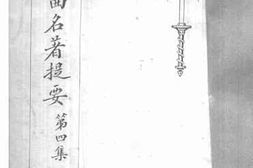 曲名著提要
第四集